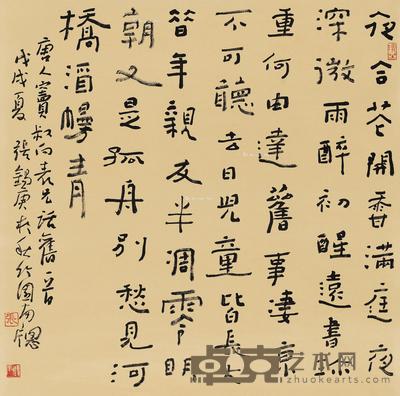 夜合花開香滿庭夜
深微雨醉初醒遠書珎
重何由達舊事凄凉
不可聽去日兒童皆長大
昔年親友半凋零明
朝又是孤舟別愁見河
橋酒幔青
唐人竇叔向表兄話舊一首
戊戌夏張錫庚於秋竹園南窗
卓克艺术网
zhuokearts.com